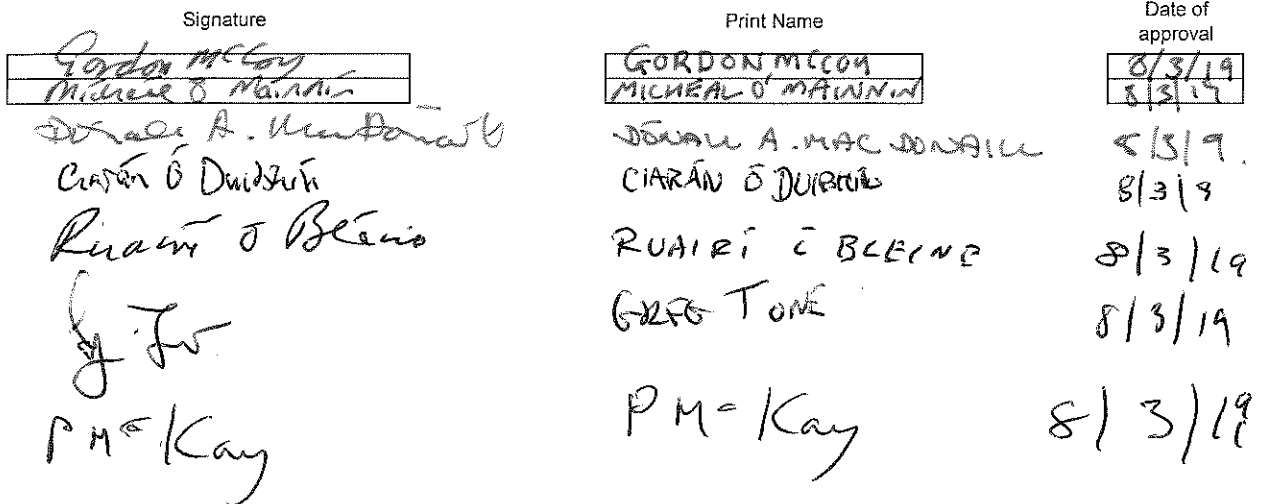 Signature Print Name Date of approval
Gordon McCoy GORDON MCCOY 8/3/19
Micheál Ó Mainnín MICHEÁL Ó MAINNÍN 8/3/19
Dónall A. MacDonaill DÓNALL A. MAC DONAILL 8/3/19.
Ciarán Ó Duibhín CIARÁN Ó DUIBHÍN 8/3/19
Ruairí Ó Bléine RUAIRÍ Ó BLEINE 8/3/19
GREG TONE 8/3/19
P McKay P McKay 8/3/19